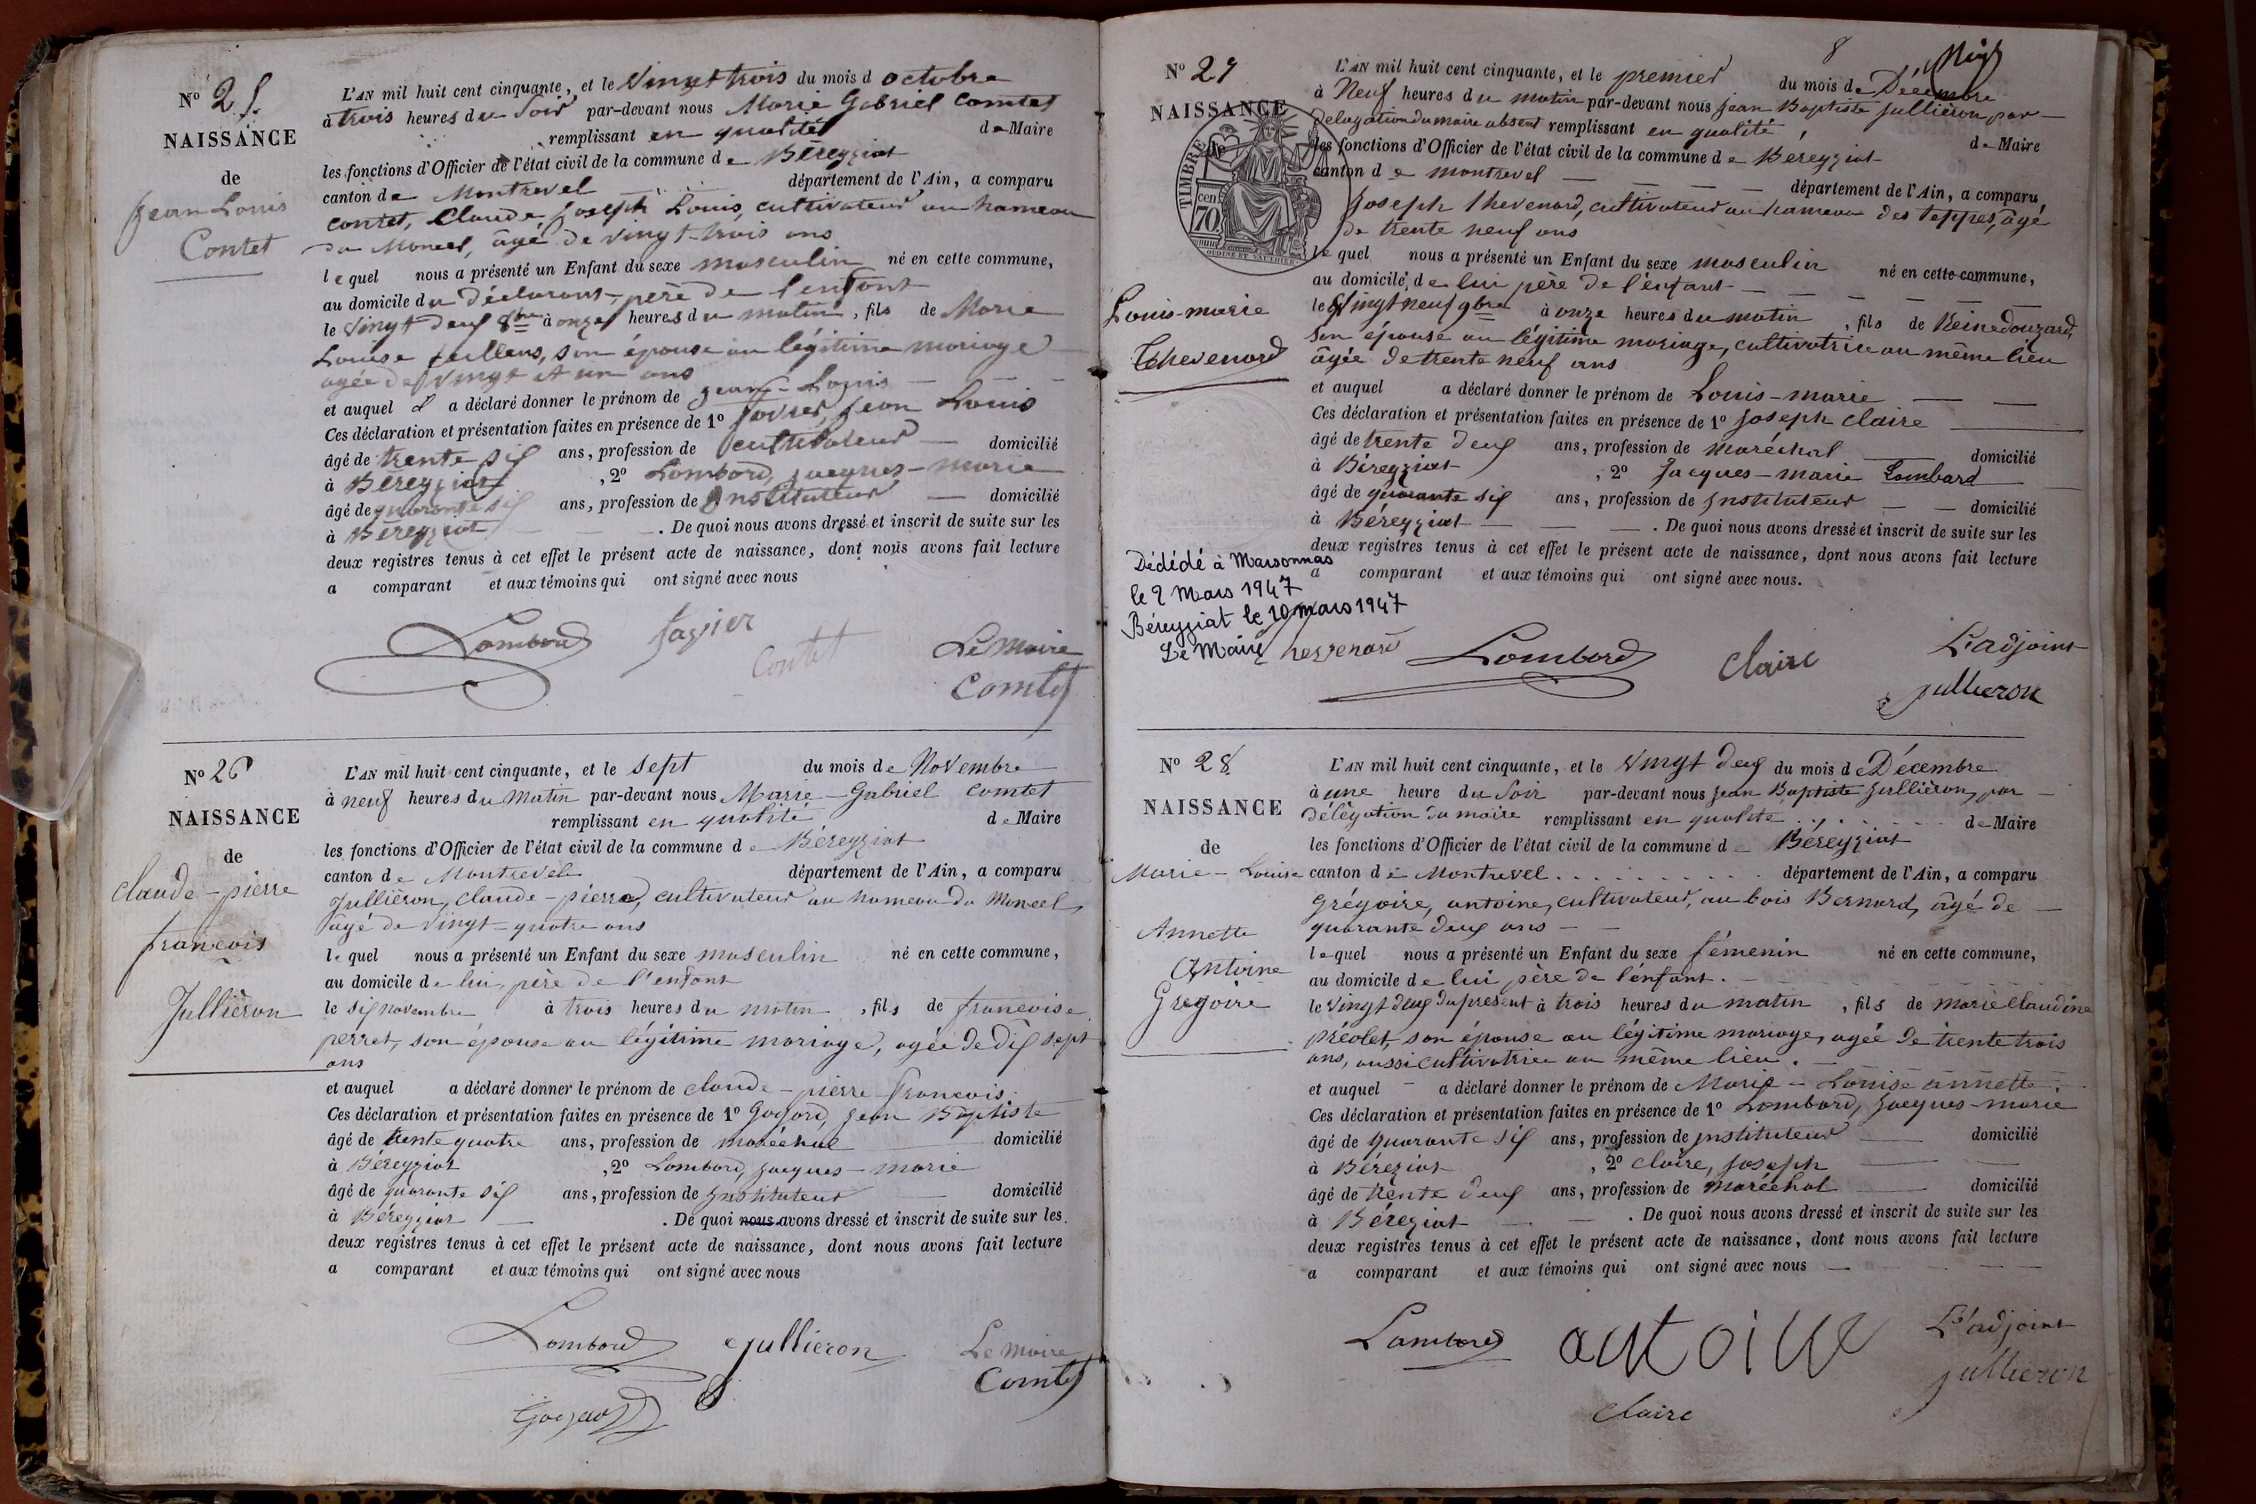 N° 25.
NAISSANCE
de
Jean Louis
Contet
L'AN mil huit cent cinquante, et le Vingt trois du mois d octobre
à trois heures du Soir par-devant nous Marie Gabriel Comtet
remplissant en qualité de Maire
les fonctions d'Officier de l'état civil de la commune de Béreyziat
canton de Montrevel département de l'Ain, a comparu
Contet, Claude Joseph Louis, cultivateur au hameau
du Moncel, âgé de vingt-trois ans
lequel nous a présenté un Enfant du sexe masculin né en cette commune,
au domicile du déclarant, père de l'enfant
le Vingt deux 8bre à onze heures du matin, fils de Marie
Louise , son épouse en légitime mariage
agée de Vingt et un ans
et auquel il a déclaré donner le prénom de Jean-Louis
Ces déclaration et présentation faites en présence de 1° , Jean Louis
âgé de trente six ans, profession de cultivateur domicilié
à Béreyziat, 2° Lombard, Jacques-marie
âgé de quarante six ans, profession de Instituteur domicilié
à Béreyziat. De quoi nous avons dressé et inscrit de suite sur les
deux registres tenus à cet effet le présent acte de naissance, dont nous avons fait lecture
a comparant et aux témoins qui ont signé avec nous
Lombard Contet Le Maire
Comtet
N° 26
NAISSANCE
de
Claude-pierre
françois
Jullieron
L'AN mil huit cent cinquante, et le sept du mois de Novembre
à neuf heures du Matin par-devant nous Marie-Gabriel Comtet
remplissant en qualité de Maire
les fonctions d'Officier de l'état civil de la commune de Béreyziat
canton de Montrevel département de l'Ain, a comparu
Jullieron, Claude-pierre, cultivateur au hameau du Moncel,
âgé de vingt-quatre ans
lequel nous a présenté un Enfant du sexe masculin né en cette commune,
au domicile de lui, père de l'enfant
le six novembre à trois heures du matin, fils de françoise
perret, son épouse en légitime mariage, agée de dix sept
ans
et auquel a déclaré donner le prénom de Claude-pierre françois
Ces déclaration et présentation faites en présence de 1° , Jean Baptiste
âgé de trente quatre ans, profession de maréchal domicilié
à Béreyziat, 2° Lombard, Jacques-marie
âgé de quarante six ans, profession de Instituteur domicilié
à Béreyziat. De quoi nous avons dressé et inscrit de suite sur les
deux registres tenus à cet effet le présent acte de naissance, dont nous avons fait lecture
a comparant et aux témoins qui ont signé avec nous
Lombard Jullieron Le Maire
Comtet
8
N° 27
NAISSANCE
TIMBRE
70 cen
Louis-marie
Thevenard
L'AN mil huit cent cinquante, et le premier du mois de Décembre
à Neuf heures du matin par-devant nous Jean Baptiste Jullieron par
Délégation du maire absent remplissant en qualité de Maire
les fonctions d'Officier de l'état civil de la commune de Béreyziat
canton de montrevel département de l'Ain, a comparu
Joseph Thevenard, cultivateur au hameau des teppes, âgé
de trente neuf ans
lequel nous a présenté un Enfant du sexe masculin né en cette commune,
au domicile de lui père de l'enfant
le Vingt neuf 9bre à onze heures du matin, fils de Reine douzard,
son épouse en légitime mariage, cultivatrice au même lieu
âgée de trente neuf ans
et auquel a déclaré donner le prénom de Louis-marie
Ces déclaration et présentation faites en présence de 1° Joseph Claire
âgé de trente deux ans, profession de maréchal domicilié
à Béreyziat, 2° Jacques-marie Lombard
âgé de quarante six ans, profession de Instituteur domicilié
à Béreyziat. De quoi nous avons dressé et inscrit de suite sur les
deux registres tenus à cet effet le présent acte de naissance, dont nous avons fait lecture
a comparant et aux témoins qui ont signé avec nous.
Dédédé à Marsonnas
le 2 Mars 1947
Béreyziat le 10 mars 1947
Le Maire
Lombard Claire L'adjoint
Jullieron
N° 28
NAISSANCE
de
Marie-Louise
Annette
Antoine
Grégoire
L'AN mil huit cent cinquante, et le Vingt deux du mois de Décembre
à une heure du Soir par-devant nous Jean Baptiste Jullieron, par
délégation du maire remplissant en qualité de Maire
les fonctions d'Officier de l'état civil de la commune de Béreyziat
canton de Montrevel département de l'Ain, a comparu
Grégoire, antoine, cultivateur, au bois Bernard, âgé de
quarante deux ans
lequel nous a présenté un Enfant du sexe fémenin né en cette commune,
au domicile de lui père de l'enfant.
le Vingt deux du présent à trois heures du matin, fils de marie Claudine
Préolet, son épouse en légitime mariage, agée de trente trois
ans, aussi cultivatrice au même lieu.
et auquel a déclaré donner le prénom de Marie-Louise annette.
Ces déclaration et présentation faites en présence de 1° Lombard, Jacques-marie
âgé de quarante six ans, profession de Instituteur domicilié
à Béreziat, 2° Claire, Joseph
âgé de trente deux ans, profession de maréchal domicilié
à Béreziat. De quoi nous avons dressé et inscrit de suite sur les
deux registres tenus à cet effet le présent acte de naissance, dont nous avons fait lecture
a comparant et aux témoins qui ont signé avec nous
Lombard antoine L'adjoint
Jullieron
Claire